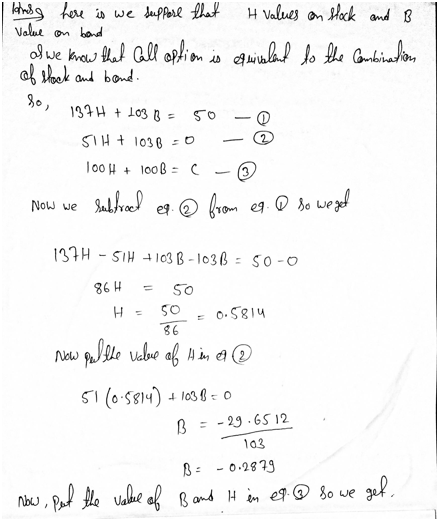 Ans: here is we suppose that H values on stock and B
value on bond
as we know that Call option is equivalent to the Combination
of stock and bond.
So,
137H + 103B = 50 — ①
51H + 103B = 0 — ②
100H + 100B = C — ③
Now we subtract eq. ② from eq. ① so we get
137H - 51H + 103B - 103B = 50 - 0
86H = 50
H = 50/86 = 0.5814
Now put the value of H in eq ②
51 (0.5814) + 103B = 0
B = -29.6512/103
B = - 0.2879
Now, put the value of B and H in eq. ③ so we get.